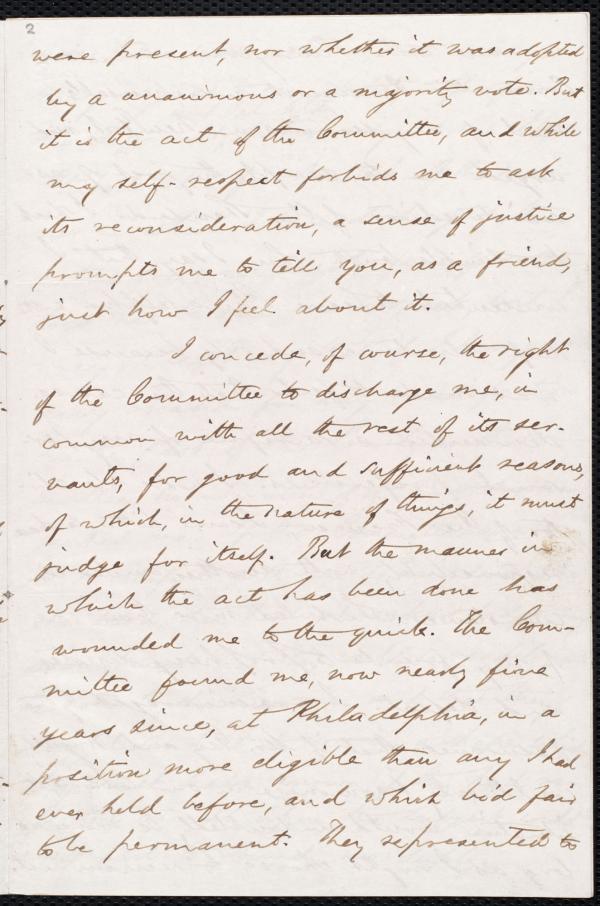 2
were present, nor whether it was adopted
by a unanimous or a majority vote. But
it is the act of the Committee, and while
my self-respect forbids me to ask
its reconsideration, a sense of justice
prompts me to tell you, as a friend,
just how I feel about it.
I concede, of course, the right
of the Committee to discharge me, in
common with all the rest of its ser-
vants, for good and sufficient reasons,
of which, in the nature of things, it must
judge for itself. But the manner in
which the act has been done has
wounded me to the quick. The Com-
mittee found me, now nearly five
years since, at Philadelphia, in a
position more eligible than any I had
ever held before, and which bid fair
to be permanent. They represented to